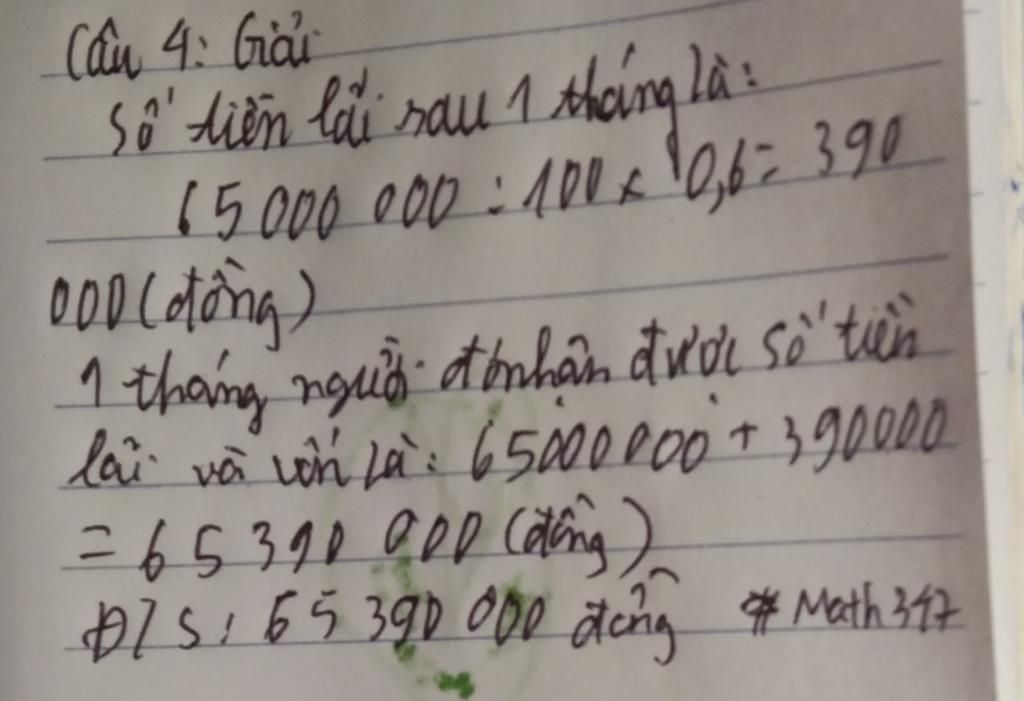 Câu 4: Giải
Số tiền lãi sau 1 tháng là:
65 000 000 : 100 x 0,6 = 390
000 (đồng)
1 tháng người đó nhận được số tiền
lãi và vốn là: 65000000 + 390000
= 65 390 000 (đồng)
Đ/S: 65 390 000 đồng # Math 347